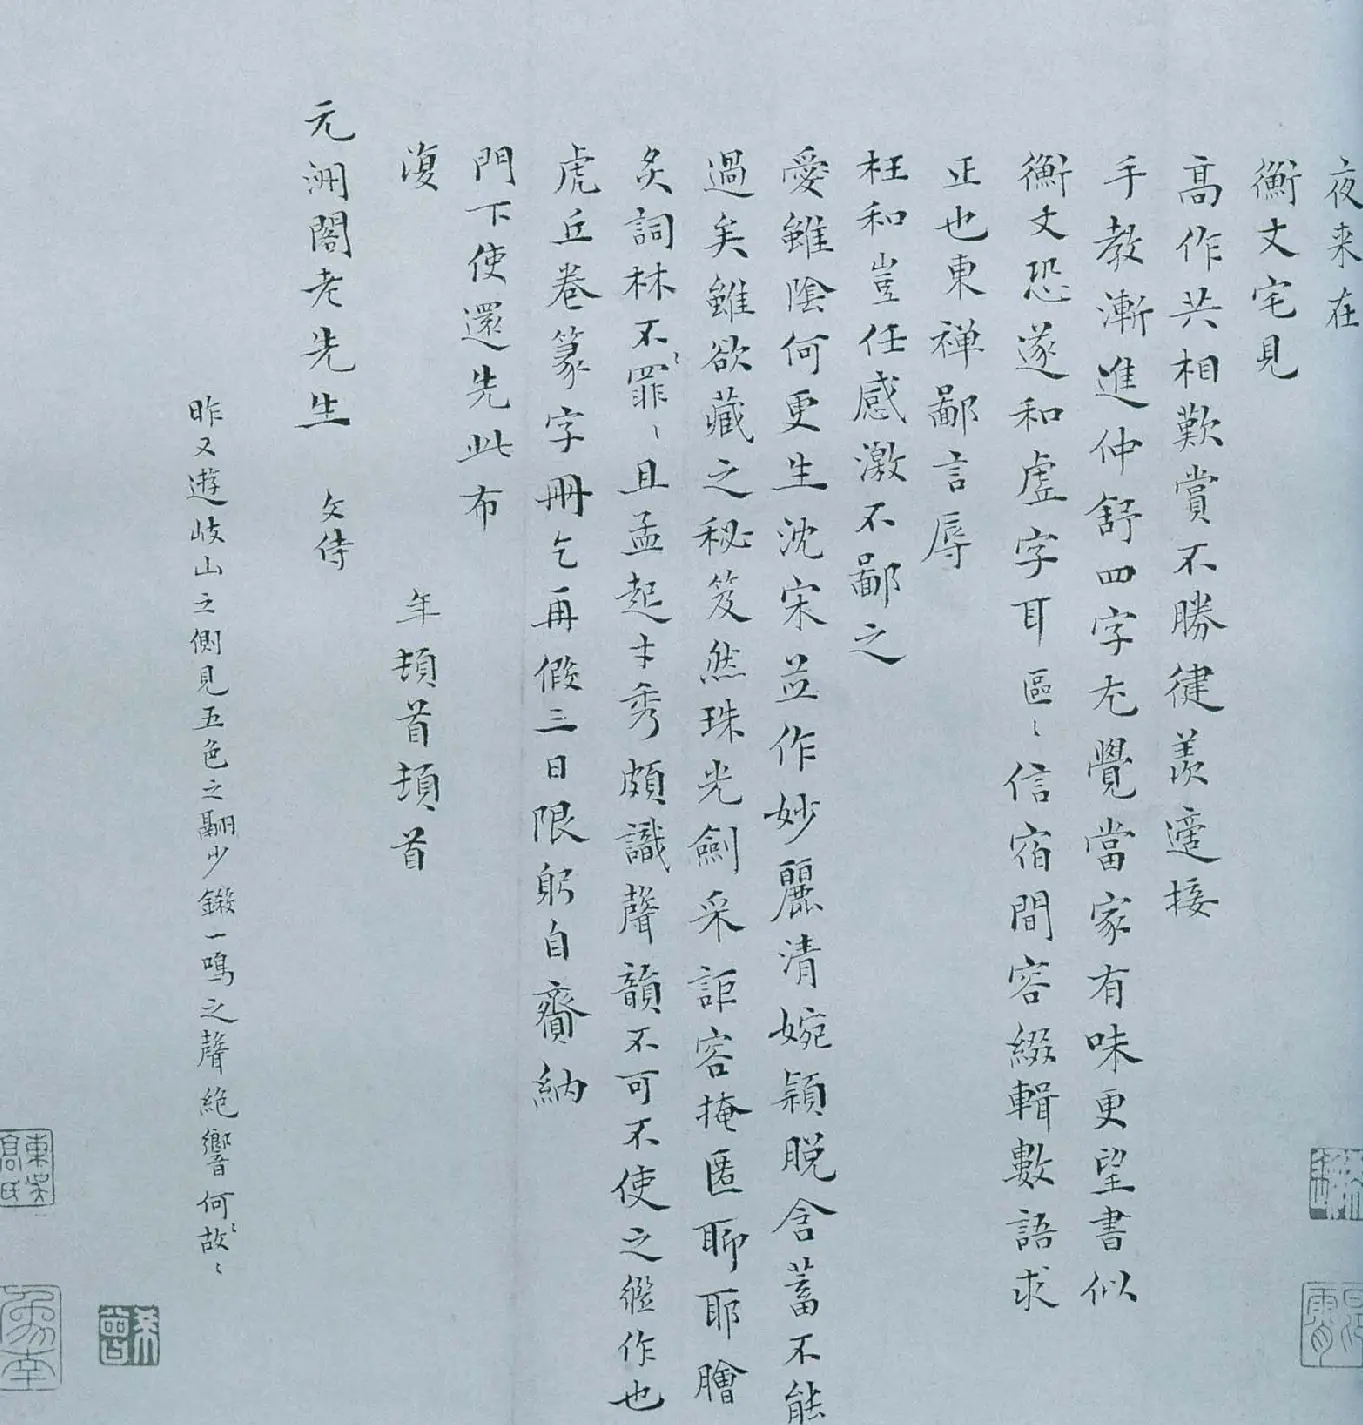 夜来在
衡文宅見
高作共相歎賞不勝健羨適接
手教漸進仲舒四字尤覺當家有味更望書似
衡文恐遂和虗字耳區〻信宿間容綴輯數語求
正也東禅鄙言辱
枉和豈任感激不鄙之
愛雖陰何更生沈宋並作妙麗清婉穎脱含蓄不能
過矣雖欲藏之秘笈然珠光劍采詎容掩匿聊耶膾
炙詞林不罪〻〻且孟起才秀頗識聲韻不可不使之繼作也
虎丘卷篆字冊乞再假三日限躬自齎納
門下使還先此布
復
年頓首頓首
元洲閣老先生 文侍
昨又遊岐山之側見五色之翮少鎩一鳴之聲絶響何故〻〻
東吳
高氏